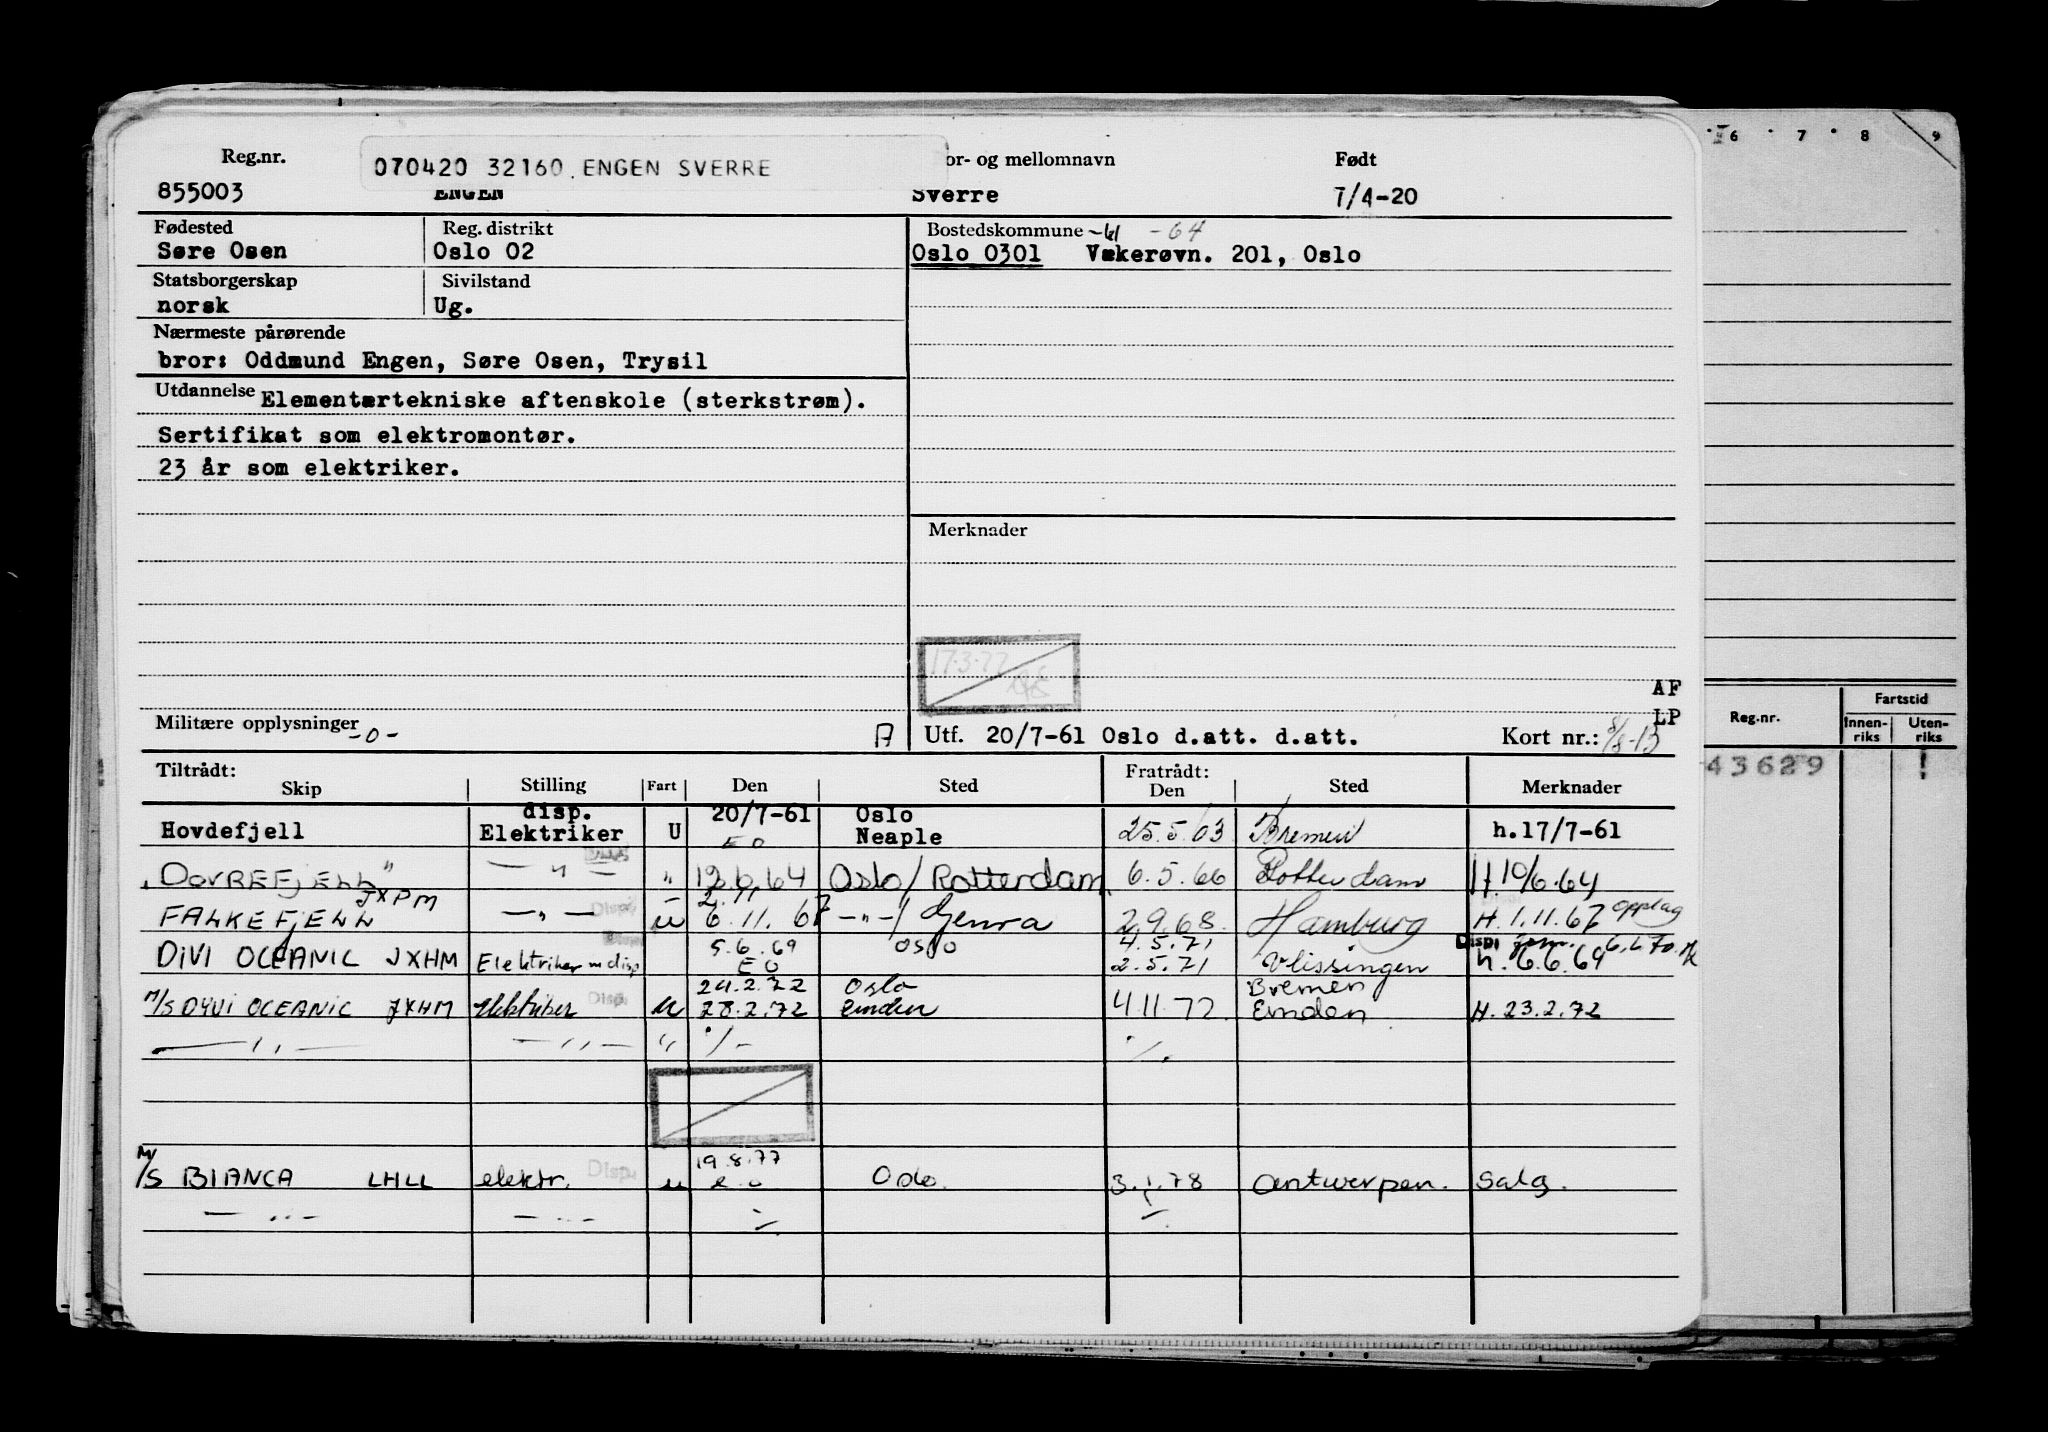 Reg.nr. For- og mellomnavn Født
070420 32160 ENGEN SVERRE
855003 ENGEN Sverre 7/4-20
Fødested Reg. distrikt Bostedskommune -61 -64
Søre Osen Oslo 02 Oslo 0301 Vækerøvn. 201, Oslo
Statsborgerskap Sivilstand
norsk Ug.
Nærmeste pårørende
bror: Oddmund Engen, Søre Osen, Trysil
Utdannelse Elementærtekniske aftenskole (sterkstrøm).
Sertifikat som elektromontør.
23 år som elektriker.
Merknader
17.3.77
AF
LP
Militære opplysninger -0- A Utf. 20/7-61 Oslo d.att. d.att. Kort nr.: 8/8-13
Tiltrådt: Fratrådt:
Skip Stilling Fart Den Sted Den Sted Merknader
disp. 20/7-61 Oslo
Hovdefjell Elektriker U EO Neaple 25.5.63 Bremen h.17/7-61
DOVREFJELL " — " — " 12.6.64 Oslo/Rotterdam 6.5.66 Rotterdam H.10/6.64
JXPM 2.11
FALKEFJELL — " — Disp. u 6.11.67 — " —/ Genova 2.9.68. Hamburg H.1.11.67 opplag
5.6.69 Oslo 4.5.71 Disp.
DIVI OCEANIC JXHM Elektriker m disp EO 2.5.71 Vlissingen h. 6.6.69
24.2.72 Oslo Bremen
M/S DYVI OCEANIC JXHM Elektriker Disp. u 28.2.72 Emden 4.11.72 Emden H. 23.2.72
— ,, — — ,, — " ./- ./.
19.8.77
M/S BIANCA LHLL elektr. Disp. u e.o Oslo. 3.1.78 Antwerpen. Salg.
— ,, — — ,, —
6 7 8 9
Reg.nr. Fartstid
Innen-riks Uten-riks
43629